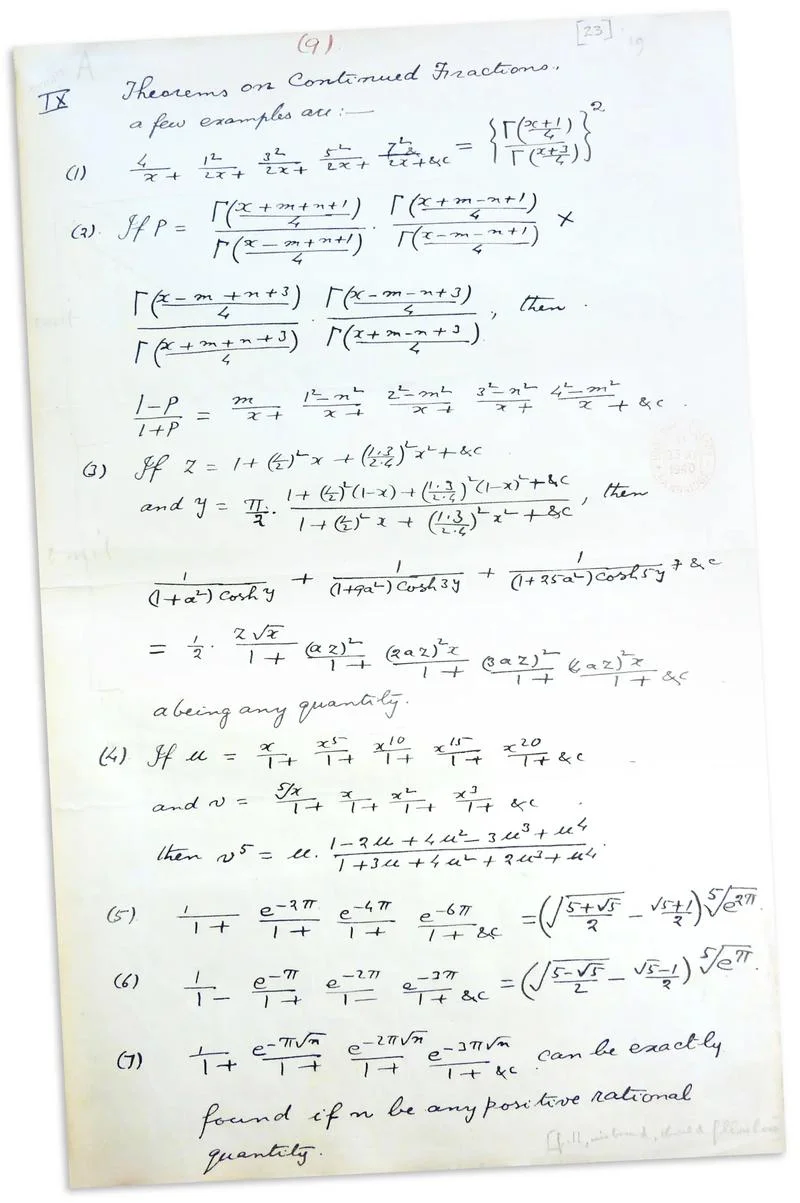 (9)
[23]
19
IX Theorems on Continued Fractions.
a few examples are :—
(1) 4/x + 1²/2x + 3²/2x + 5²/2x + 7²/2x + &c = {Γ((x+1)/4) / Γ((x+3)/4)}²
(2). If P = Γ((x+m+n+1)/4) / Γ((x−m+n+1)/4) · Γ((x+m−n+1)/4) / Γ((x−m−n+1)/4) ×
Γ((x−m+n+3)/4) / Γ((x+m+n+3)/4) · Γ((x−m−n+3)/4) / Γ((x+m−n+3)/4), then
(1−P)/(1+P) = m/x + (1²−n²)/x + (2²−m²)/x + (3²−n²)/x + (4²−m²)/x + &c.
(3) If z = 1 + (1/2)²x + (1·3/2·4)²x² + &c
and y = π/2 · (1 + (1/2)²(1−x) + (1·3/2·4)²(1−x)² + &c) / (1 + (1/2)²x + (1·3/2·4)²x² + &c), then
1/((1+a²) cosh y) + 1/((1+9a²) cosh 3y) + 1/((1+25a²) cosh 5y) + &c
= 1/2 · z√x/1 + (az)²/1 + (2az)²x/1 + (3az)²/1 + (4az)²x/1 + &c
a being any quantity.
(4) If u = x/1 + x⁵/1 + x¹⁰/1 + x¹⁵/1 + x²⁰/1 + &c
and v = ⁵√x/1 + x/1 + x²/1 + x³/1 + &c
then v⁵ = u · (1−2u+4u²−3u³+u⁴) / (1+3u+4u²+2u³+u⁴).
(5) 1/1 + e^(−2π)/1 + e^(−4π)/1 + e^(−6π)/1 + &c = (√((5+√5)/2) − (√5+1)/2) ⁵√(e^(2π)).
(6) 1/1 − e^(−π)/1 + e^(−2π)/1 − e^(−3π)/1 + &c = (√((5−√5)/2) − (√5−1)/2) ⁵√(e^π).
(7) 1/1 + e^(−π√n)/1 + e^(−2π√n)/1 + e^(−3π√n)/1 + &c can be exactly
found if n be any positive rational
quantity.